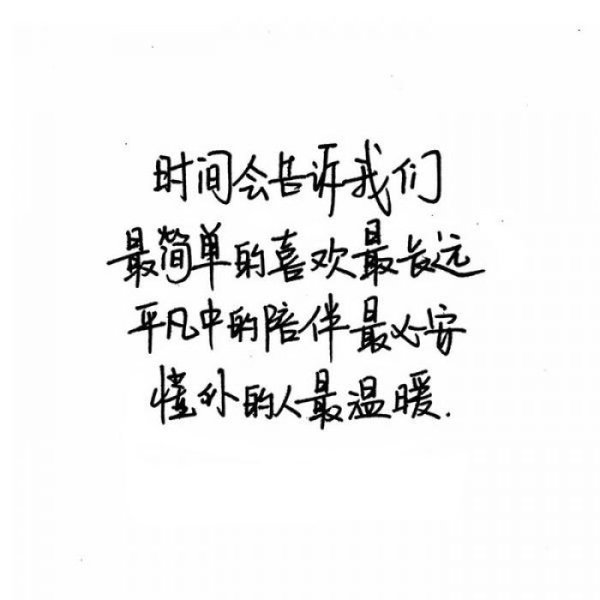 时间会告诉我们
最简单的喜欢最长远
平凡中的陪伴最心安
懂你的人最温暖.